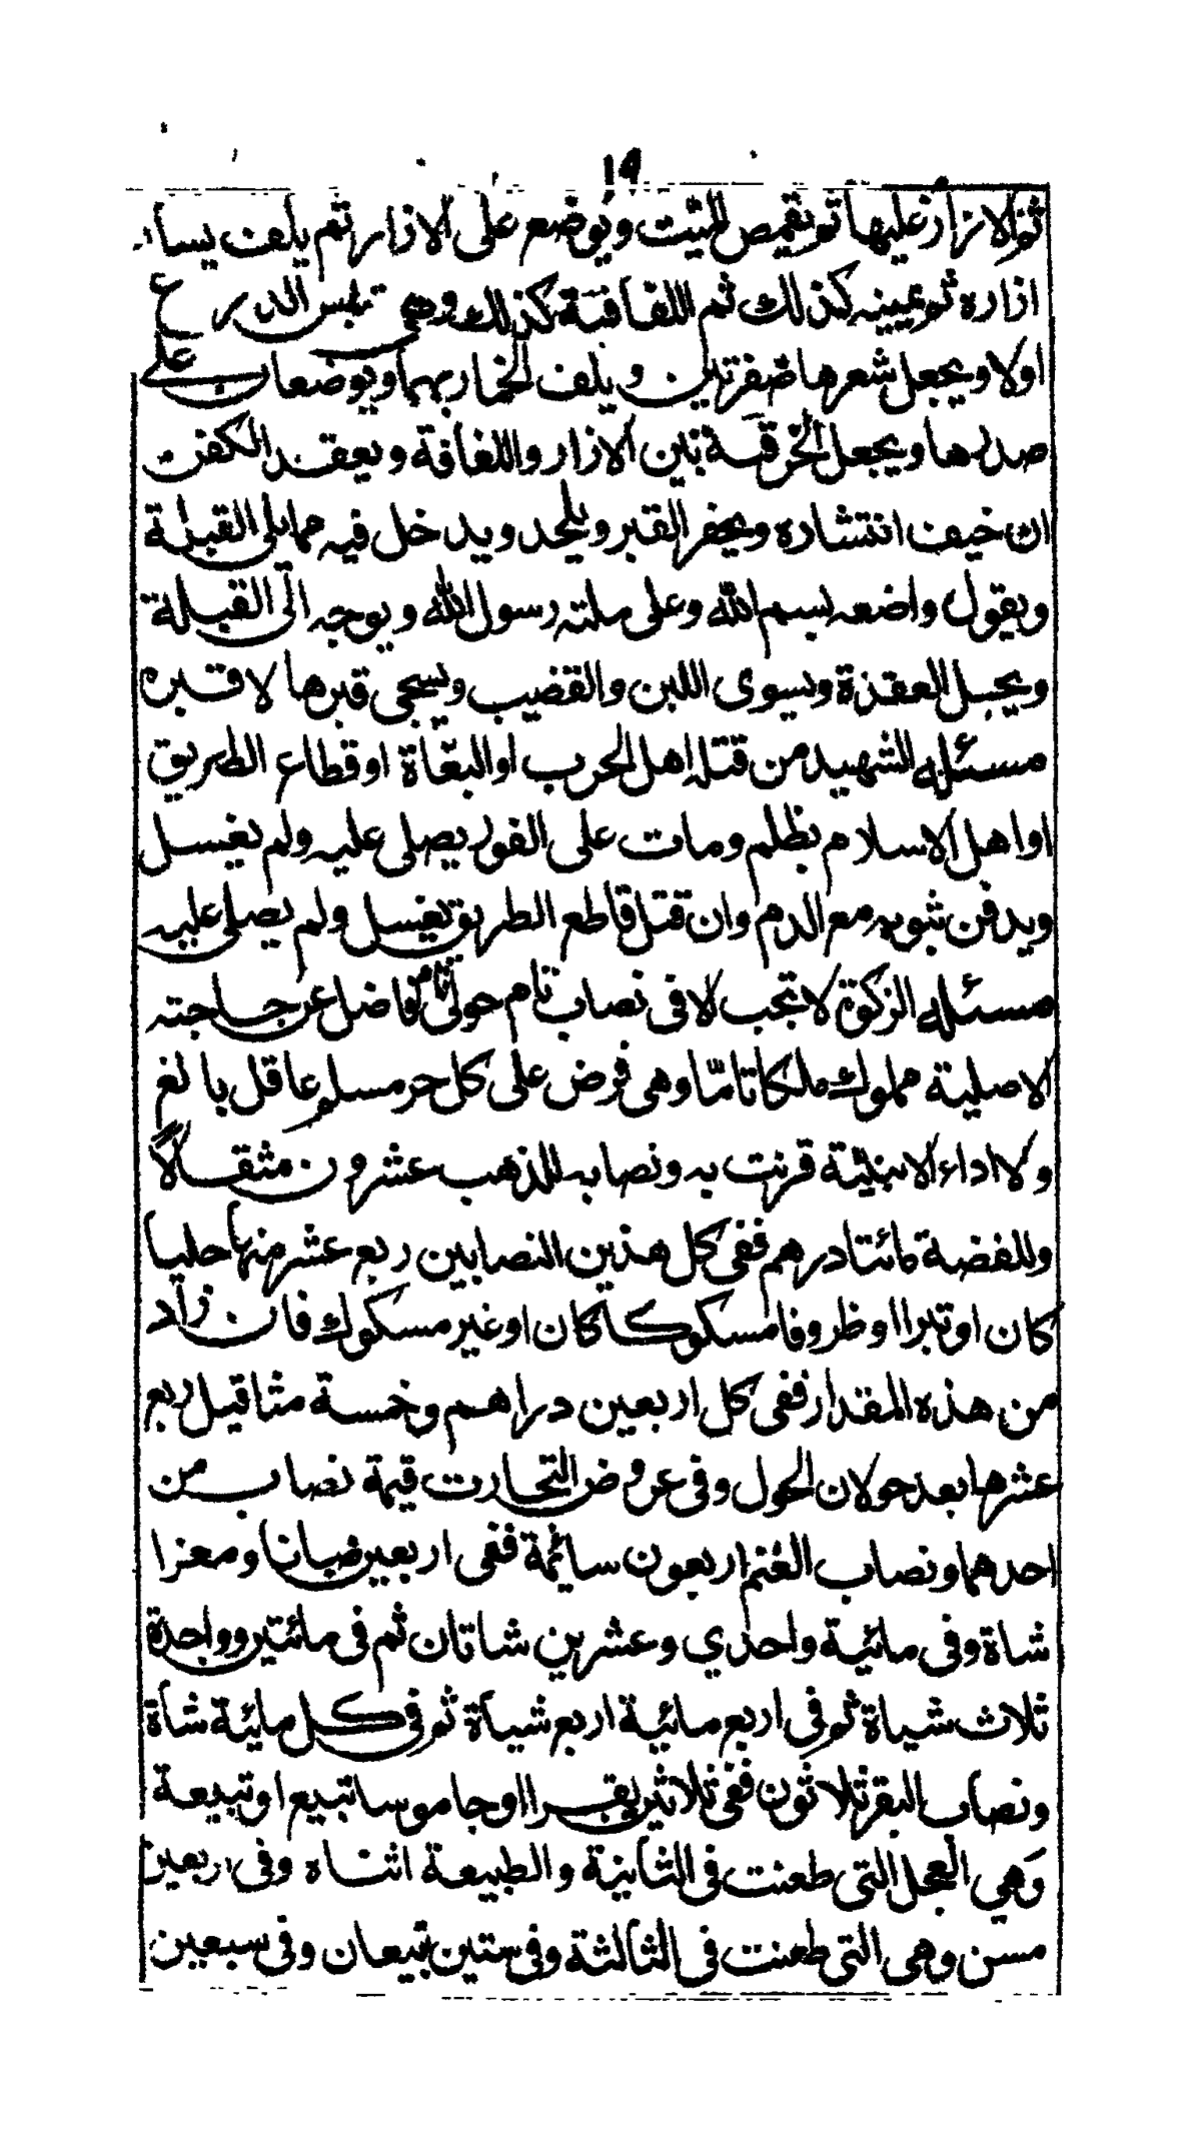 ١٩
ثم الازار عليها ثم يقمص الميت ويوضع على الازار ثم يلف يسار
ازاره ثم يمينه كذلك ثم اللفافة كذلك وهي تلبس الدرع
اولا ويجعل شعرها ضفرتين ويلف الخمار بهما ويوضعان على
صدرها ويجعل الخرقة بين الازار واللفافة ويعقد الكفن
ان خيف انتشاره ويحفر القبر ويلحد ويدخل فيه مما يلى القبلة
ويقول واضعه بسم الله وعلى ملته رسول الله ويوجه الى القبلة
ويحل العقدة ويسوى اللبن والقضيب ويسجى قبرها لا قبره
مسئلة الشهيد من قتله اهل الحرب او البغاة او قطاع الطريق
او اهل الاسلام بظلم ومات على الفور يصلى عليه ولم يغسل
ويدفن بثوبه مع الدم وان قتل قاطع الطريق يغسل ولم يصلى عليه
مسئلة الزكوة لا تجب الا فى نصاب تام حولى فاضل عن حاجته
الاصلية مملوك ملكا تامّا وهى فرض على كل حر مسلم عاقل بالغ
ولا اداء الا بنية قرنت به ونصابه للذهب عشرون مثقالا
وللفضة مائتا درهم ففى كل هذين النصابين ربع عشر منها حليا
كان او تبرا او ظروفا مسكوكا كان او غير مسكوك فان زاد
من هذه المقدار ففى كل اربعين دراهم وخمسة مثاقيل ربع
عشرها بعد حولان الحول وفى عروض التجارت قيمة نصاب من
احدهما ونصاب الغنم اربعون سائمة ففى اربعين ضانا ومعزا
شاة وفى مائية واحدي وعشرين شاتان ثم فى مائتين وواحدة
ثلاث شياة ثم فى اربع مائية اربع شياة ثم فى كل مائية شاة
ونصاب البقر ثلاثون ففى ثلاثين بقرا او جاموسا تبيع او تبيعة
وهي العجل التى طعنت فى الثانية والطبيعة انثاه وفى اربعين
مسن وهى التى طعنت فى الثالثة وفى ستين تبيعان وفى سبعين